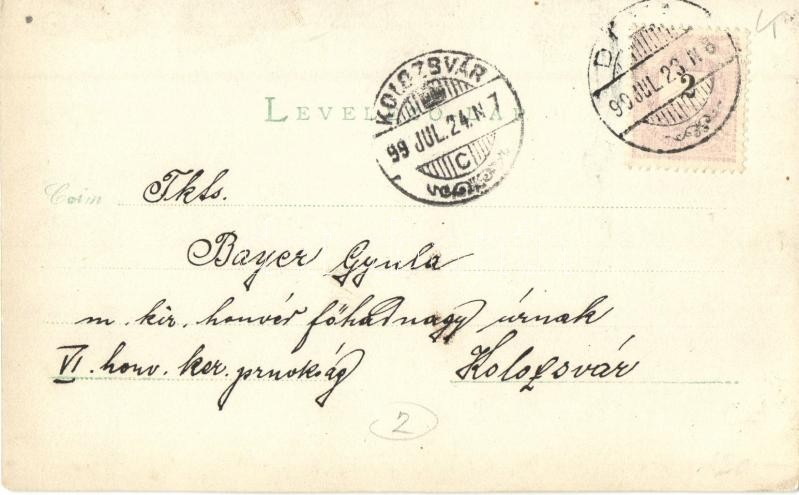 LEVELEZŐ-LAP
KOLOZSVÁR
99 JUL. 24. N 7
C
99 JUL. 23. N 8
2
Czim
Tkts.
Bayer Gyula
m. kir. honvéd főhadnagy úrnak
VI. honv. ker. prnokság
Kolozsvár
2